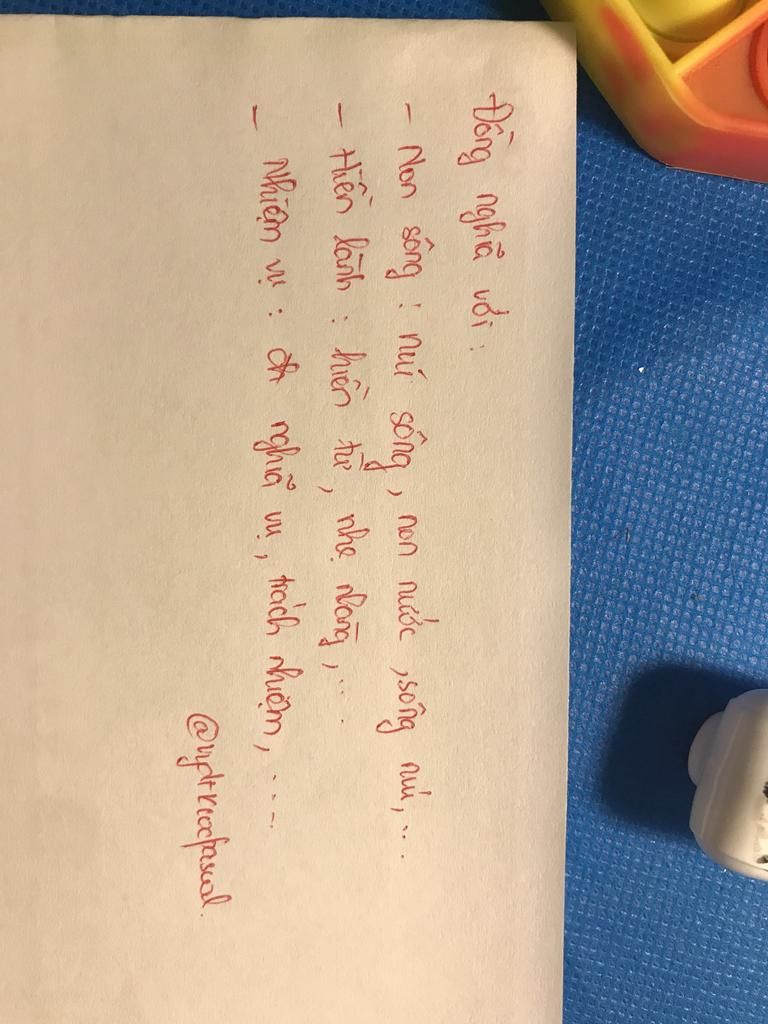 Đồng nghĩa với :
- Non sông : núi sông, non nước, sông núi,...
- Hiền lành : hiền từ, nhẹ nhàng,...
- Nhiệm vụ : nghĩa vụ, trách nhiệm,....